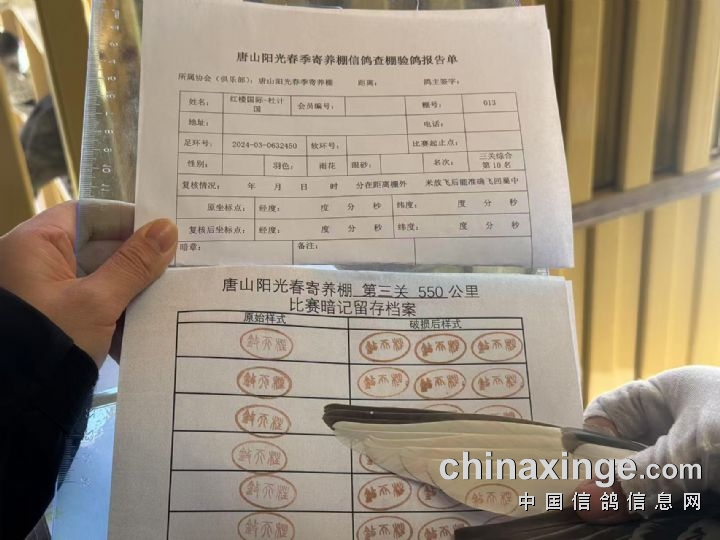 唐山阳光春季寄养棚信鸽查棚验鸽报告单
所属协会（俱乐部）：唐山阳光春季寄养棚 距离： 鸽主签字：
姓名： 红楼国际-杜计国 会员编号： 棚号： 013
地址： 电话：
足环号： 2024-03-0632450 软环号： 比赛起止点：
性别： 羽色： 雨花 眼砂： 名次： 三关综合第10名
复核情况： 年 月 日 时 分在距离棚外 米放飞后能准确飞回巢中
原坐标点： 经度： 度 分 秒 纬度： 度 分 秒
复核后坐标点： 经度： 度 分 秒 纬度： 度 分 秒
暗章： 备注：
唐山阳光春寄养棚 第三关 550 公里
比赛暗记留存档案
原始样式 破损后样式
chinaxinge.com
中国信鸽信息网